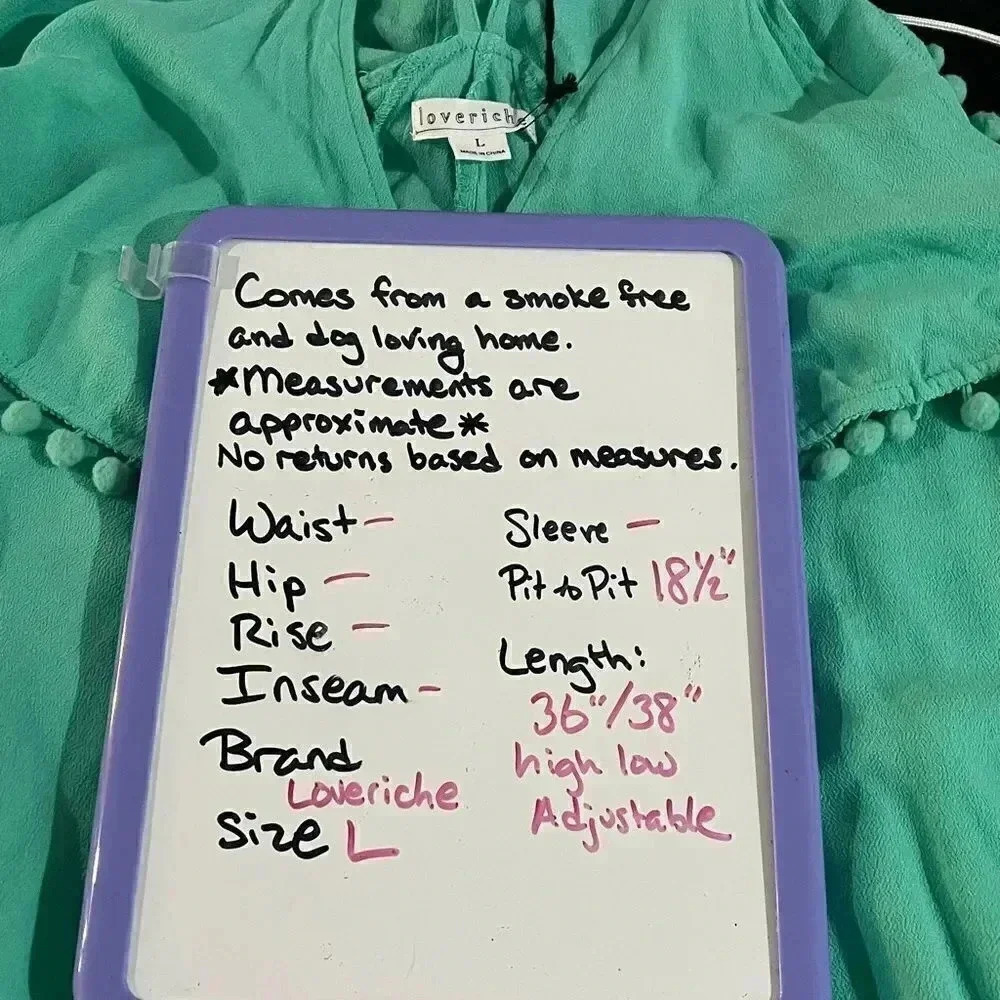 loveriche
L
MADE IN CHINA
Comes from a smoke free
and dog loving home.
*Measurements are
approximate*
No returns based on measures.
Waist -
Hip -
Rise -
Inseam -
Brand
Loveriche
Size L
Sleeve -
Pit to Pit 18½"
Length:
36"/38"
high low
Adjustable